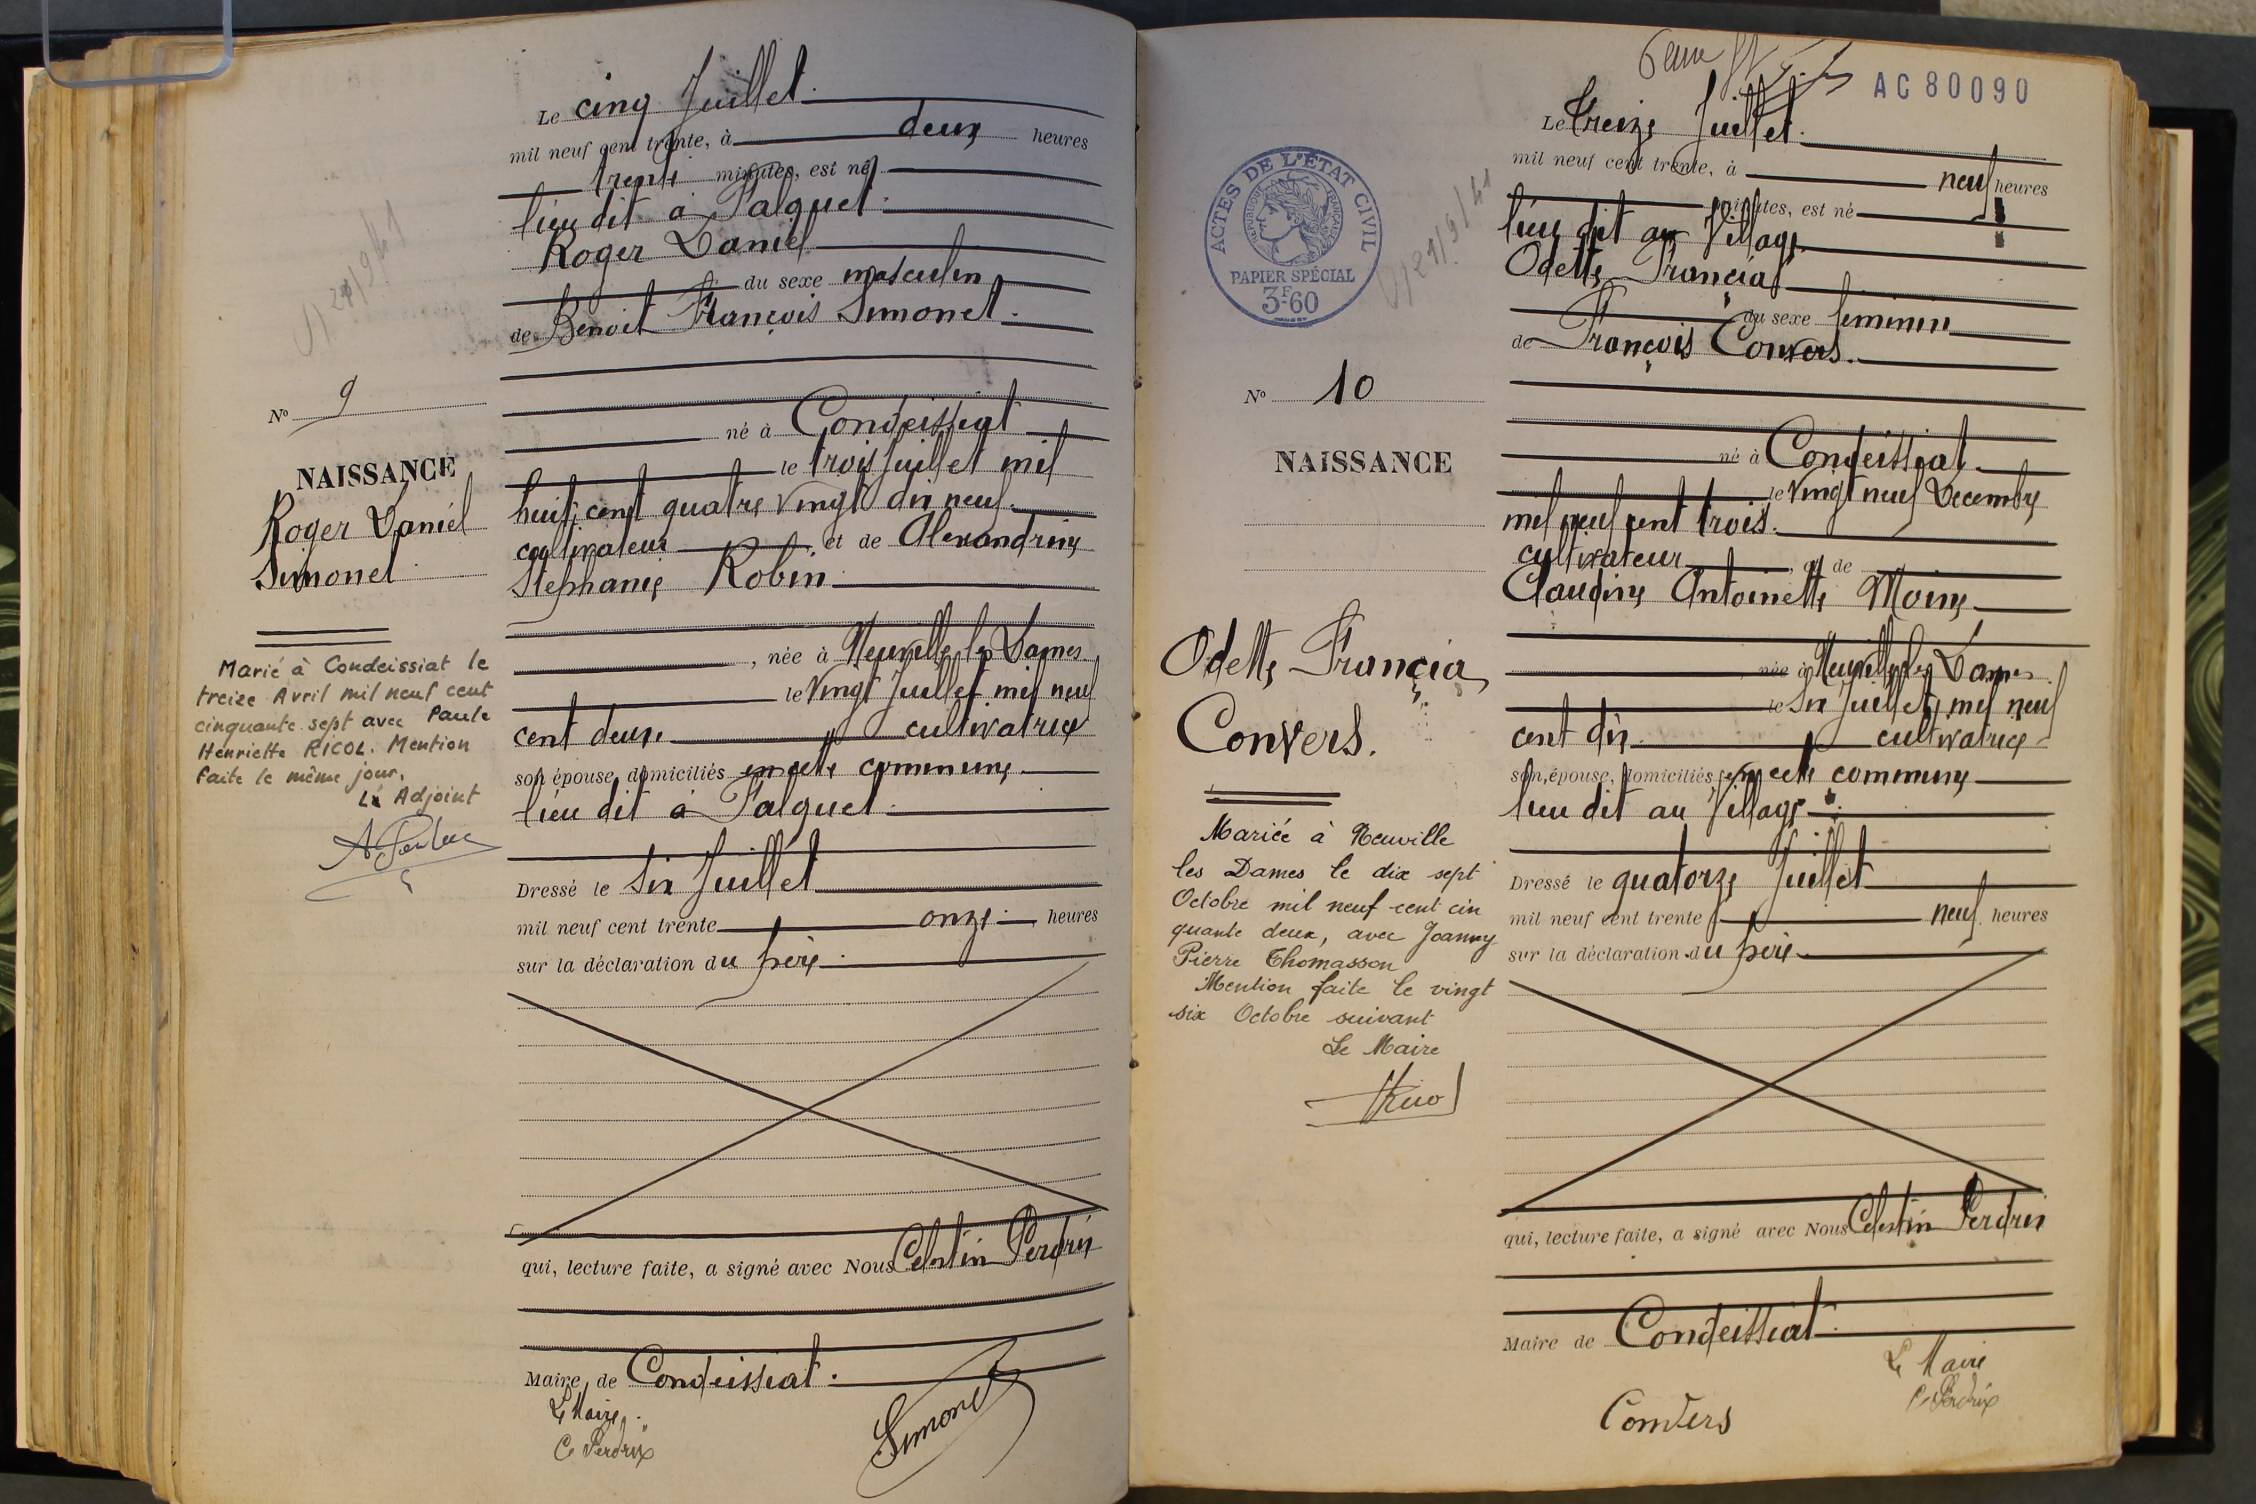 Le cinq Juillet.
mil neuf cent trente, à deux heures
trente minutes, est né
lieu dit à Falquet.
Roger Daniel
du sexe masculin
de Benoit François Simonet.
né à Condeissiat
le trois Juillet mil
huit cent quatre vingt dix neuf.
cultivateur et de Alexandrine
Stéphanie Robin
, née à Neuville les Dames
le Vingt Juillet mil neuf
cent deux. cultivatrice
son épouse, domiciliés en cette commune.
lieu dit à Falquet.
Dressé le six Juillet
mil neuf cent trente onze heures
sur la déclaration du père.
qui, lecture faite, a signé avec Nous Celestin Perdrix
Maire de Condeissiat.
Le Maire.
C. Perdrix
Simonet
No 9
NAISSANCE
Roger Daniel
Simonet
Marié à Condeissiat le
treize Avril mil neuf cent
cinquante sept avec Paule
Henriette RICOL. Mention
faite le même jour.
Le Adjoint
AC 80090
Le treize Juillet.
mil neuf cent trente, à neuf heures
minutes, est né
lieu dit au Village
Odette Francia
du sexe féminin
de François Convers.
né à Condeissiat
le Vingt neuf Decembre
mil neuf cent trois.
cultivateur, et de
Claudine Antoinette Moine
née à Neuville les Dames
le Six Juillet mil neuf
cent dix. cultivatrice
son épouse, domiciliés en cette commune
lieu dit au Village
Dressé le quatorze Juillet
mil neuf cent trente neuf heures
sur la déclaration du père
qui, lecture faite, a signé avec Nous Celestin Perdrix
Maire de Condeissiat.
Le Maire
C. Perdrix
Convers
ACTES DE L'ÉTAT CIVIL
RÉPUBLIQUE FRANÇAISE
PAPIER SPÉCIAL
3F.60
No 10
NAISSANCE
Odette Francia
Convers.
Mariée à Neuville
les Dames le dix sept
Octobre mil neuf cent cin
quante deux, avec Joanny
Pierre Thomasson
Mention faite le vingt
six Octobre suivant
Le Maire